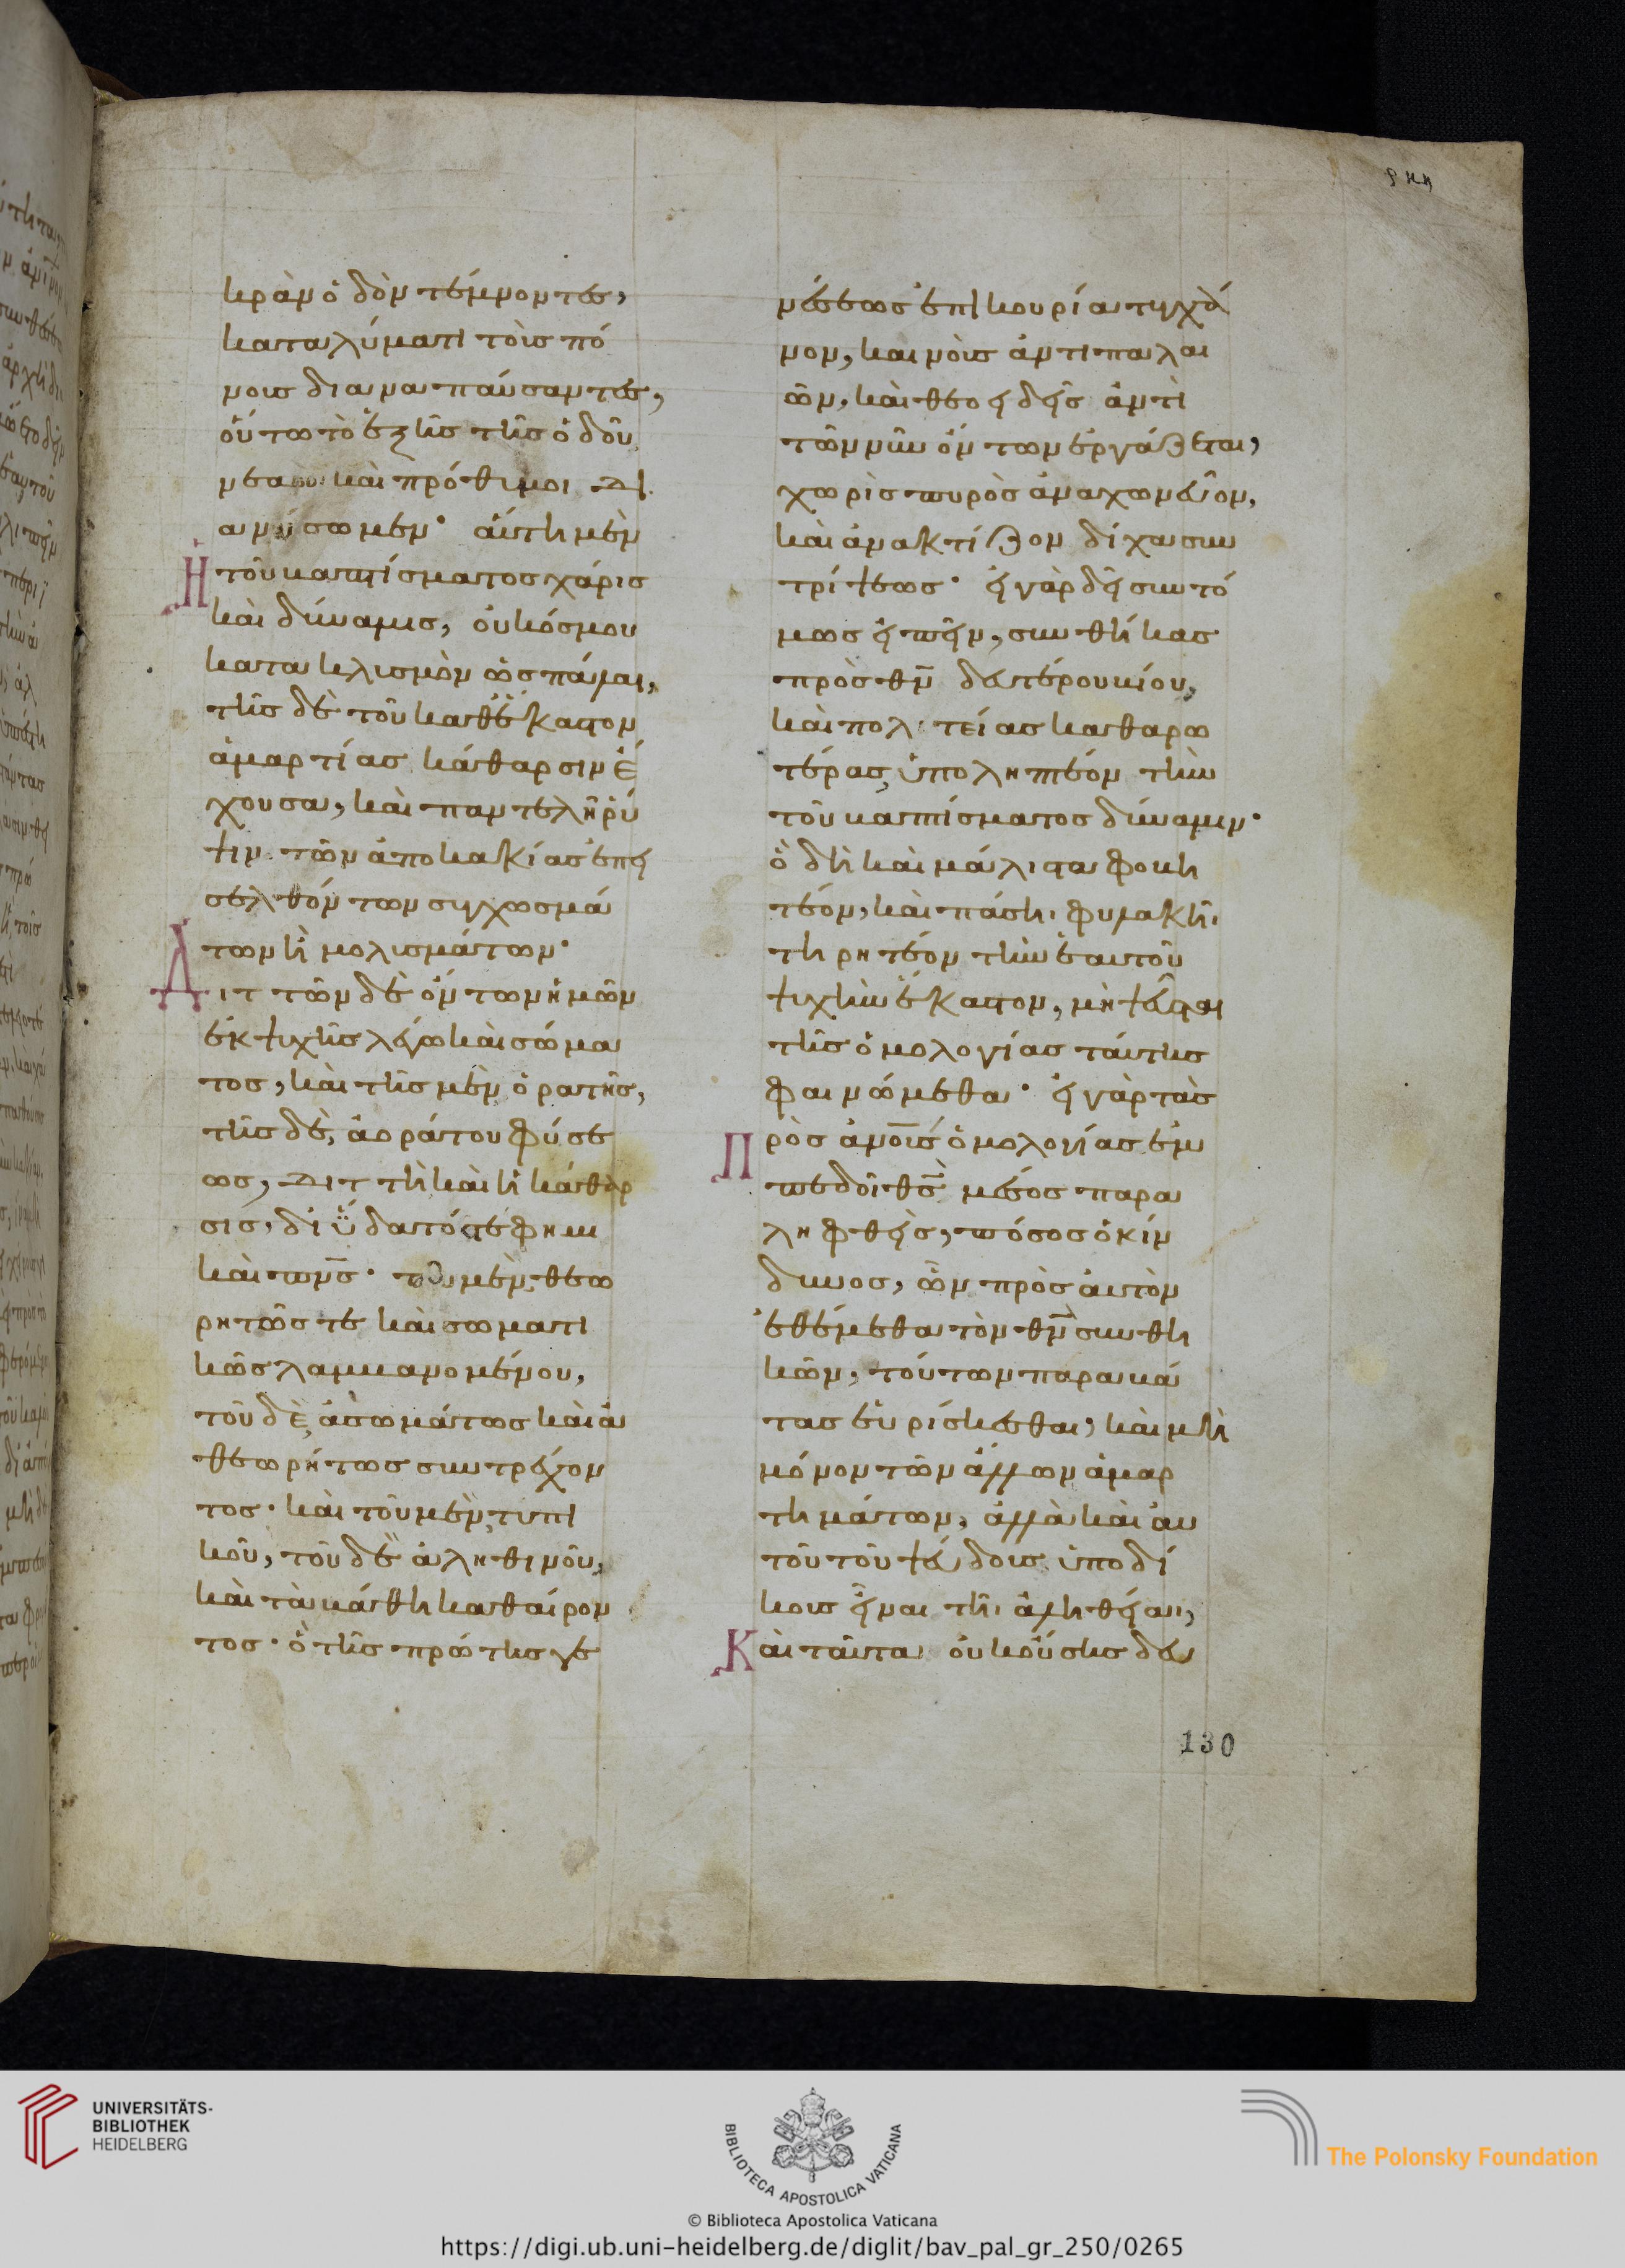 ρνη
κρὰν ὁδὸν τέμνοντες,
καταλύματι τοῖς πό
νοις διαναπαύσαντες,
οὕτω τὸ ἑξῆς τῆς ὁδοῦ
νεαροὶ καὶ πρόθυμοι δι
ανύσωμεν· αὕτη μὲν
ἡ τοῦ βαπτίσματος χάρις
καὶ δύναμις, οὐ κόσμου
κατακλυσμὸν ὡς πάλαι,
τῆς δὲ τοῦ καθ' ἕκαστον
ἁμαρτίας κάθαρσιν ἔ
χουσα, καὶ παντελῆ ῥύ
ψιν τῶν ἀπὸ κακίας ἐπει
σελθόντων συγχωσμά
των ἢ μολυσμάτων·
Διττῶν δὲ ὄντων ἡμῶν
ἐκ ψυχῆς λέγω καὶ σώμα
τος, καὶ τῆς μὲν ὁρατῆς,
τῆς δὲ, ἀοράτου φύσε
ως, διττὴ καὶ ἡ κάθαρ
σις, δι' ὕδατός τέ φημι
καὶ πνς· τοῦ μὲν, θεω
ρητῶς τε καὶ σωματι
κῶς λαμβανομένου,
τοῦ δὲ, ἀσωμάτως καὶ ἀ
θεωρήτως συντρέχον
τος· καὶ τοῦ μὲν, τυπι
κοῦ, τοῦ δὲ ἀληθινοῦ,
καὶ τὰ βάθη καθαίρον
τος· ὃ τῆς πρώτης γε
νέσεως ἐπικουρία τυγχά
νον, καινοὺς ἀντὶ παλαι
ῶν, καὶ θεοειδεῖς ἀντὶ
τῶν νῦν ὄντων ἐργάζεται,
χωρὶς πυρὸς ἀναχωνεῦον,
καὶ ἀνακτίζον δίχα συν
τρίψεως· εἰ γὰρ δεῖ συντό
μως εἰπεῖν, συνθήκας
πρὸς θν δευτέρου βίου,
καὶ πολιτείας καθαρω
τέρας, ὑποληπτέον τὴν
τοῦ βαπτίσματος δύναμιν·
ὃ δὴ καὶ μάλιστα φοβη
τέον, καὶ πάσῃ φυλακῇ
τηρητέον τὴν ἑαυτοῦ
ψυχὴν ἕκαστον, μὴ ψεῦσται
τῆς ὁμολογίας ταύτης
φαινώμεθα· εἰ γὰρ τὰς
πρὸς ἀνοῖς ὁμολογίας ἐμ
πεδοῖ θς μέσος παρα
ληφθεὶς, πόσος ὁ κίν
δυνος, ὧν πρὸς αὐτὸν
ἐθέμεθα τὸν θν συνθη
κῶν, τούτων παραβά
τας εὑρίσκεσθαι, καὶ μὴ
μόνον τῶν ἄλλων ἁμαρ
τημάτων, ἀλλὰ καὶ αὐ
τοῦ τοῦ ψεύδους ὑποδί
κους εἶναι τῇ ἀληθείᾳ,
Καὶ ταῦτα οὐκ οὔσης δευ
130
UNIVERSITÄTS-
BIBLIOTHEK
HEIDELBERG
BIBLIOTECA APOSTOLICA VATICANA
The Polonsky Foundation
© Biblioteca Apostolica Vaticana
https://digi.ub.uni-heidelberg.de/diglit/bav_pal_gr_250/0265